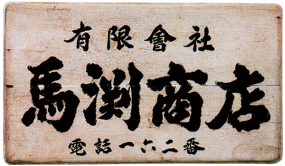 有限會社
馬渕商店
電話一六二番